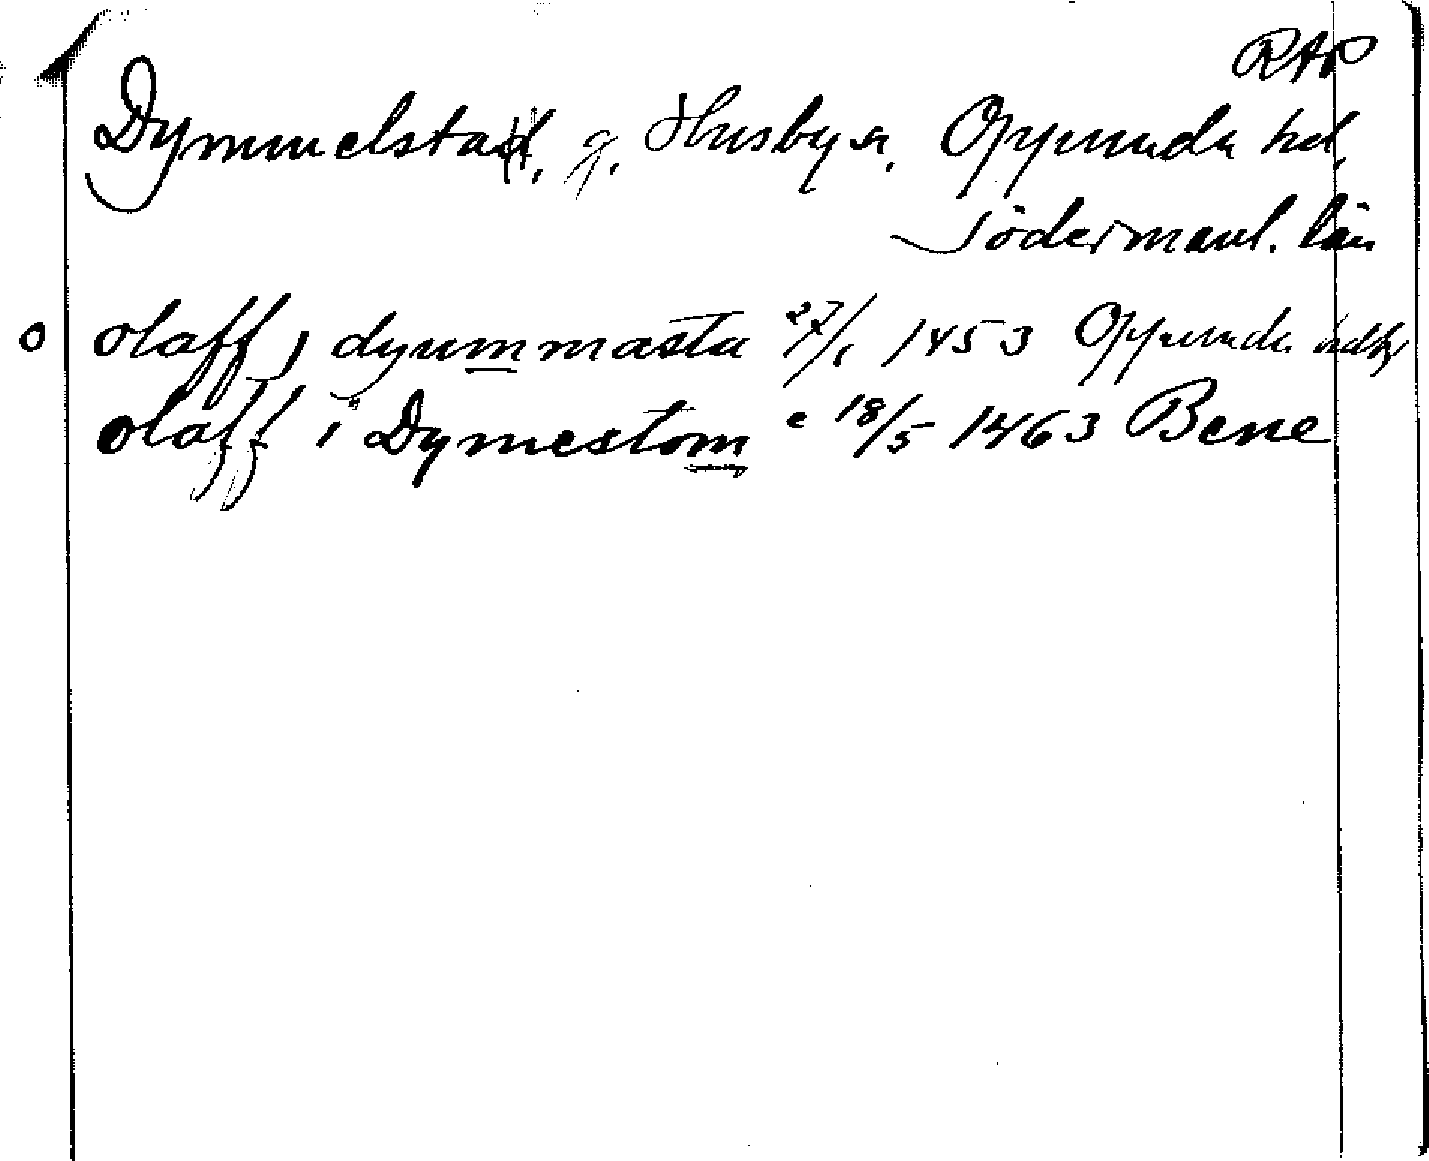 RAP
Dymmelstad, g. Husby sn. Oppunda hd,
Södermanl. län
o olaff j dyummasta 27/1 1453 Oppunda hdtg
olaff i Dymestom c 18/5 1463 Bene